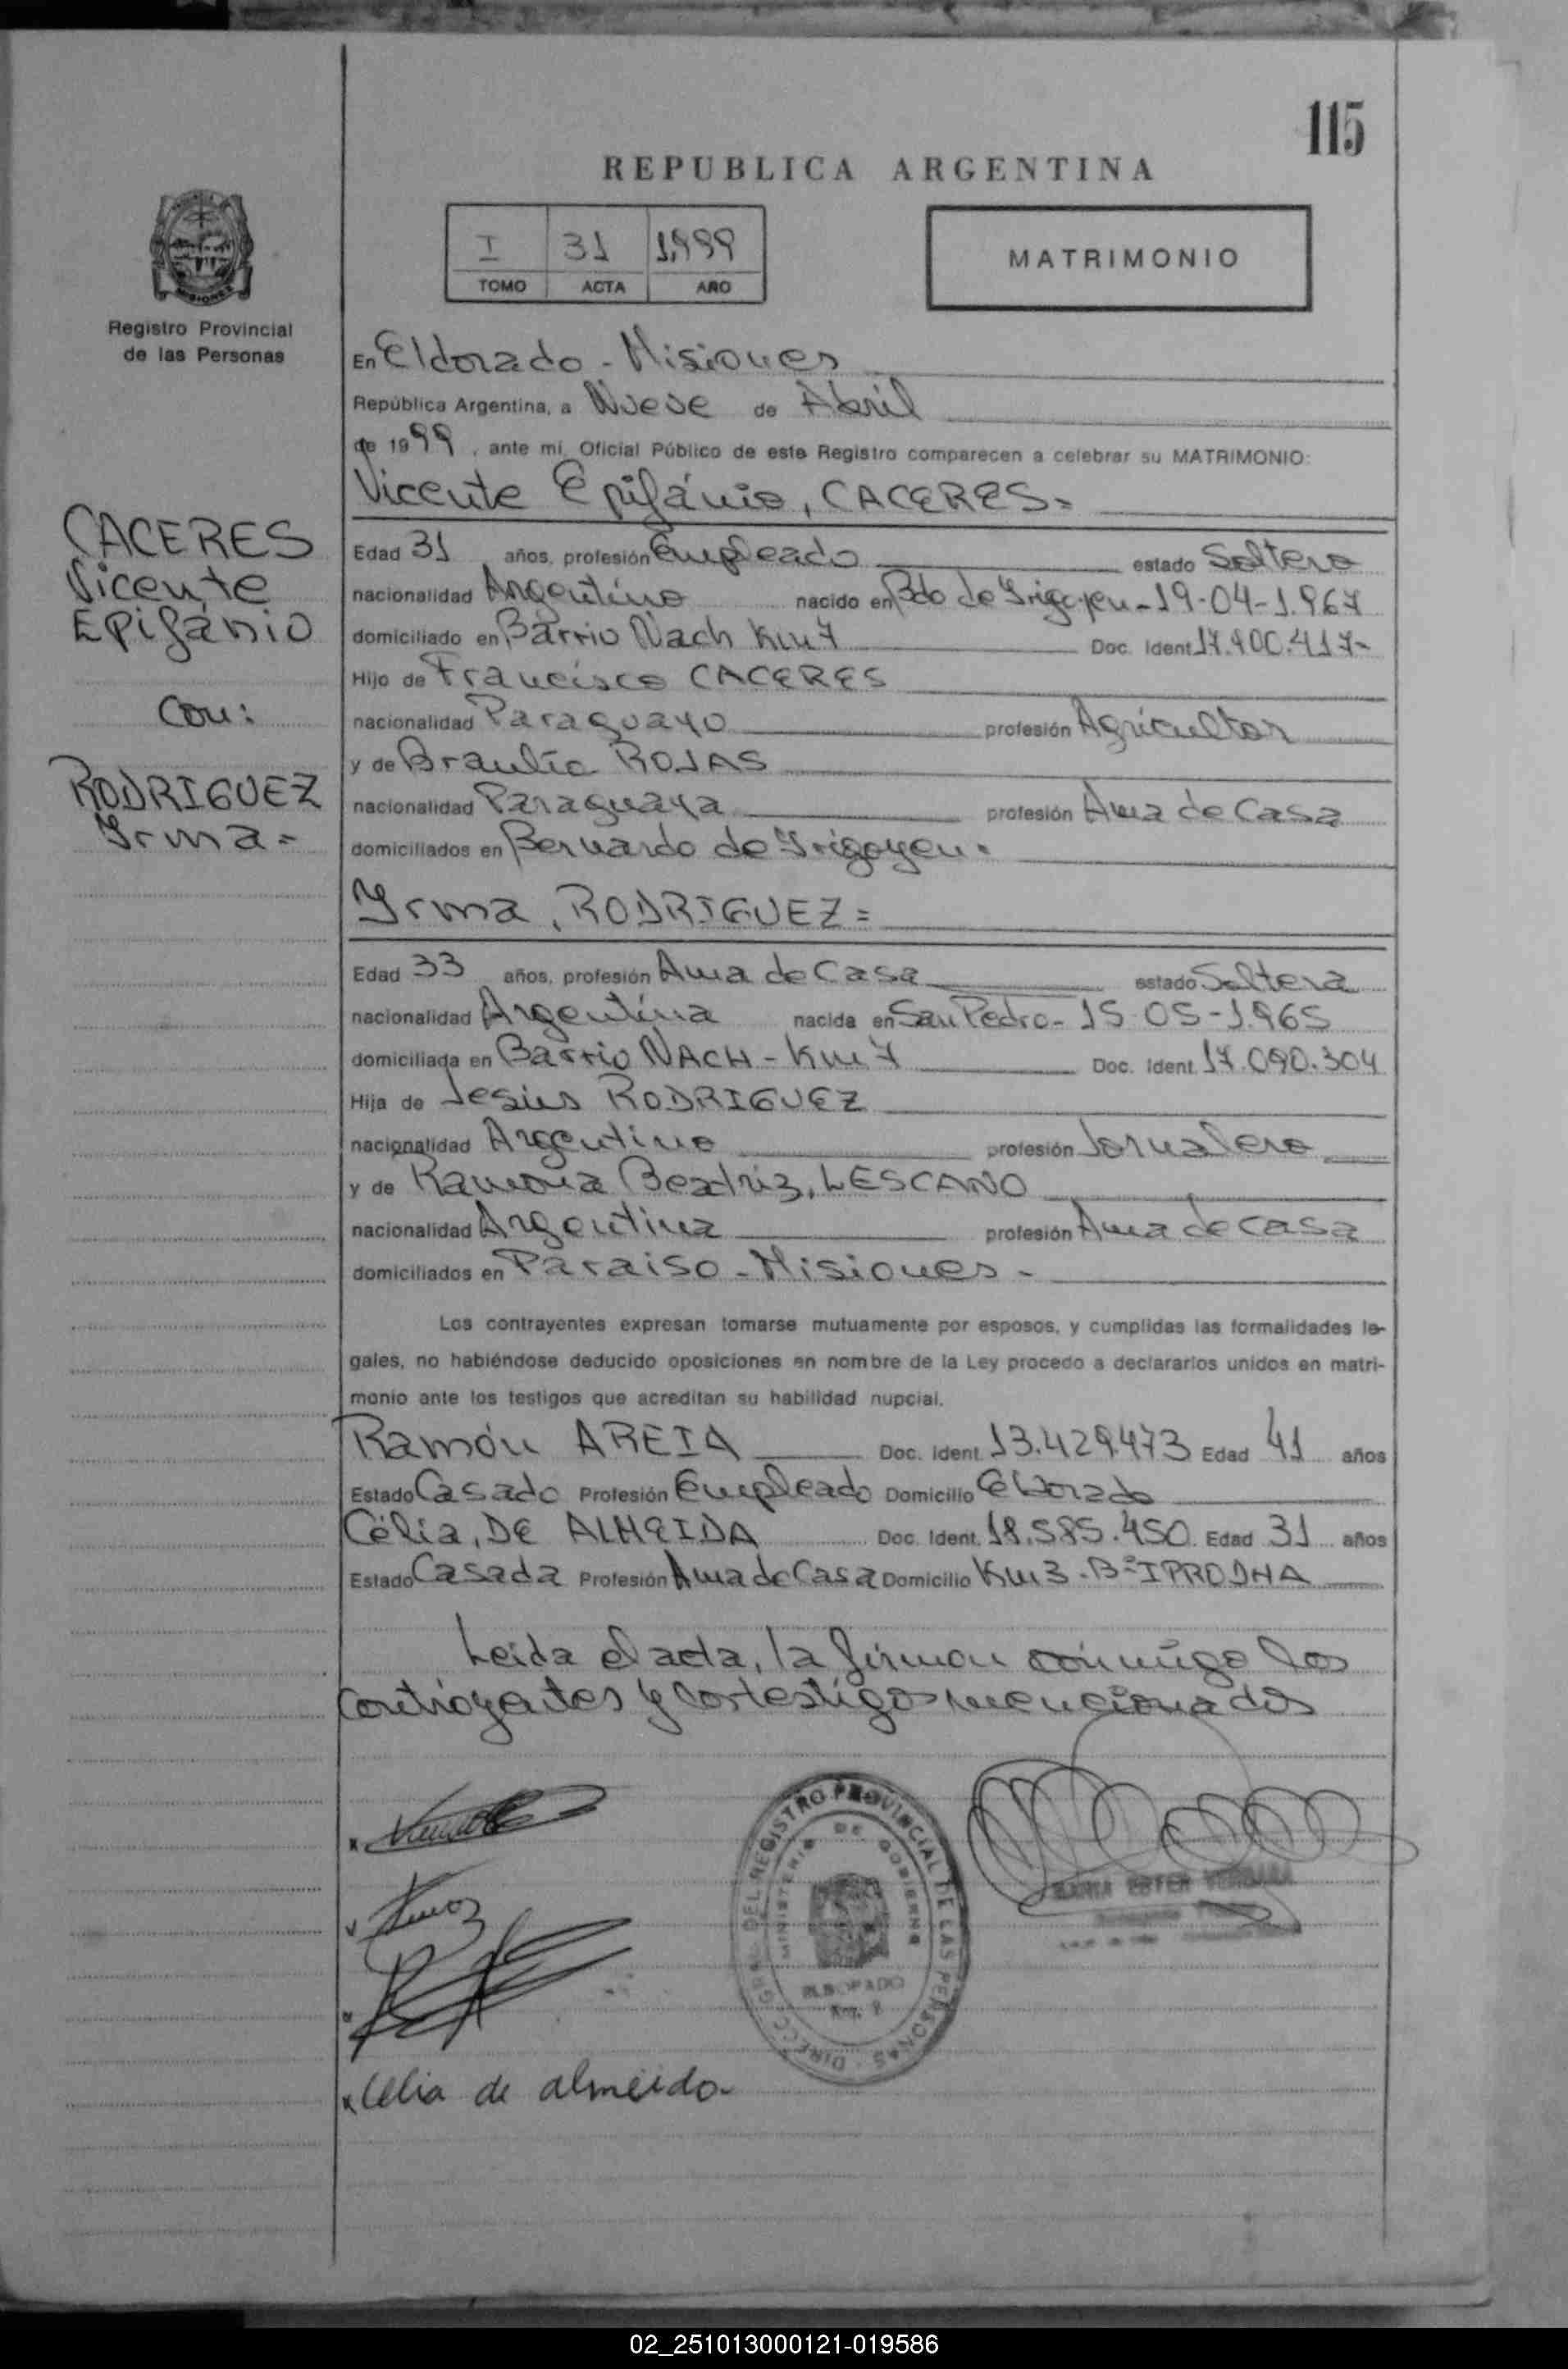 115
REPUBLICA ARGENTINA
I 31 1,999
TOMO ACTA AÑO
MATRIMONIO
MISIONES
Registro Provincial
de las Personas
En Eldorado - Misiones
República Argentina, a Nueve de Abril
de 1999, ante mí, Oficial Público de este Registro comparecen a celebrar su MATRIMONIO:
Vicente Epifánio, CACERES=
CACERES
Vicente
Epifánio
Con:
RODRIGUEZ
Yrma=
Edad 31 años, profesión Empleado estado Soltero
nacionalidad Argentino nacido en Bdo de Yrigoyen-19-04-1.967
domiciliado en Barrio Nach Km 7 Doc. Ident. 17.900.417-
Hijo de Francisco CACERES
nacionalidad Paraguayo profesión Agricultor
y de Braulia ROJAS
nacionalidad Paraguaya profesión Ama de Casa
domiciliados en Bernardo de Yrigoyen.
Yrma, RODRIGUEZ=
Edad 33 años, profesión Ama de Casa estado Soltera
nacionalidad Argentina nacida en San Pedro-15-05-1.965
domiciliada en Barrio NACH-Km 7 Doc. Ident. 17.090.304
Hija de Jesús RODRIGUEZ
nacionalidad Argentino profesión Jornalero
y de Ramona Beatriz, LESCANO
nacionalidad Argentina profesión Ama de Casa
domiciliados en Paraiso-Misiones-
Los contrayentes expresan tomarse mutuamente por esposos, y cumplidas las formalidades le-
gales, no habiéndose deducido oposiciones en nombre de la Ley procedo a declararlos unidos en matri-
monio ante los testigos que acreditan su habilidad nupcial.
Ramón AREIA Doc. Ident. 13.429.473 Edad 41 años
Estado Casado Profesión Empleado Domicilio Eldorado
Célia, DE ALMEIDA Doc. Ident. 18.585.450 Edad 31 años
Estado Casada Profesión Ama de Casa Domicilio Km 3-Bº IPRODHA
Leida el acta, la firman conmigo los
contrayentes y los testigos mencionados
DIRECC. GRAL. DEL REGISTRO PROVINCIAL DE LAS PERSONAS
MINISTERIO DE GOBIERNO
ELDORADO
MARIA ESTER VERGARA
Celia de almeida
02_251013000121-019586